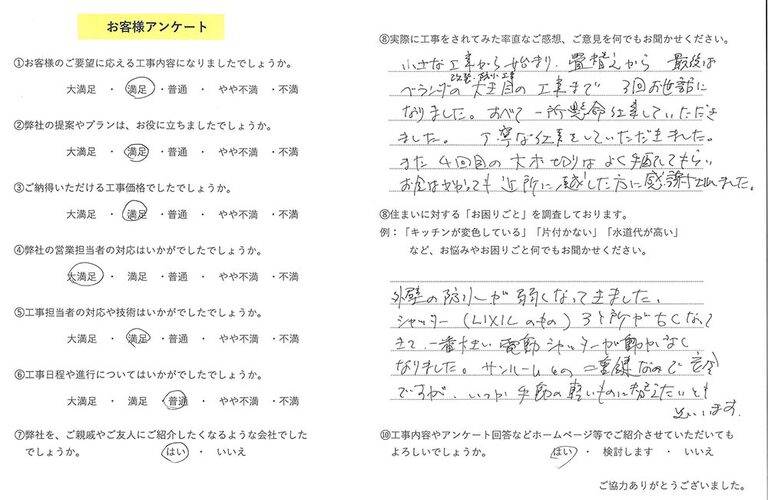 お客様アンケート
①お客様のご要望に応える工事内容になりましたでしょうか。
大満足 ・ 満足 ・普通 ・ やや不満 ・不満
②弊社の提案やプランは、お役に立ちましたでしょうか。
大満足 ・ 満足 ・普通 ・ やや不満 ・不満
③ご納得いただける工事価格でしたでしょうか。
大満足 ・ 満足 ・普通 ・ やや不満 ・不満
④弊社の営業担当者の対応はいかがでしたでしょうか。
大満足 ・ 満足 ・普通 ・ やや不満 ・不満
⑤工事担当者の対応や技術はいかがでしたでしょうか。
大満足 ・ 満足 ・普通 ・ やや不満 ・不満
⑥工事日程や進行についてはいかがでしたでしょうか。
大満足 ・ 満足 ・普通 ・ やや不満 ・不満
⑦弊社を、ご親戚やご友人にご紹介したくなるような会社でした
でしょうか。 はい ・ いいえ
⑧実際に工事をされてみた率直なご感想、ご意見を何でもお聞かせください。
小さな工事から始まり、畳替えから 最後は
ベランダの 工事まで 3回お世話に
なりました。すべて一所懸命仕事していただき
ました。丁寧な仕事をしていただきました。
また4回目の大木切りは よく
お金はかかっても近所に した方に感謝されました。
⑧住まいに対する「お困りごと」を調査しております。
例：「キッチンが変色している」「片付かない」「水道代が高い」
など、お悩みやお困りごと何でもお聞かせください。
外壁の防水が弱くなってきました。
シャッター(LIXILのもの)3ヶ所が古くなって
きて、一番大きい電動シャッターが動かなく
なりました。サンルームもの二重鍵なので安全
ですが、いつか手動の軽いものに替えたいとも
思います。
⑩工事内容やアンケート回答などホームページ等でご紹介させていただいても
よろしいでしょうか。 はい ・ 検討します ・ いいえ
ご協力ありがとうございました。